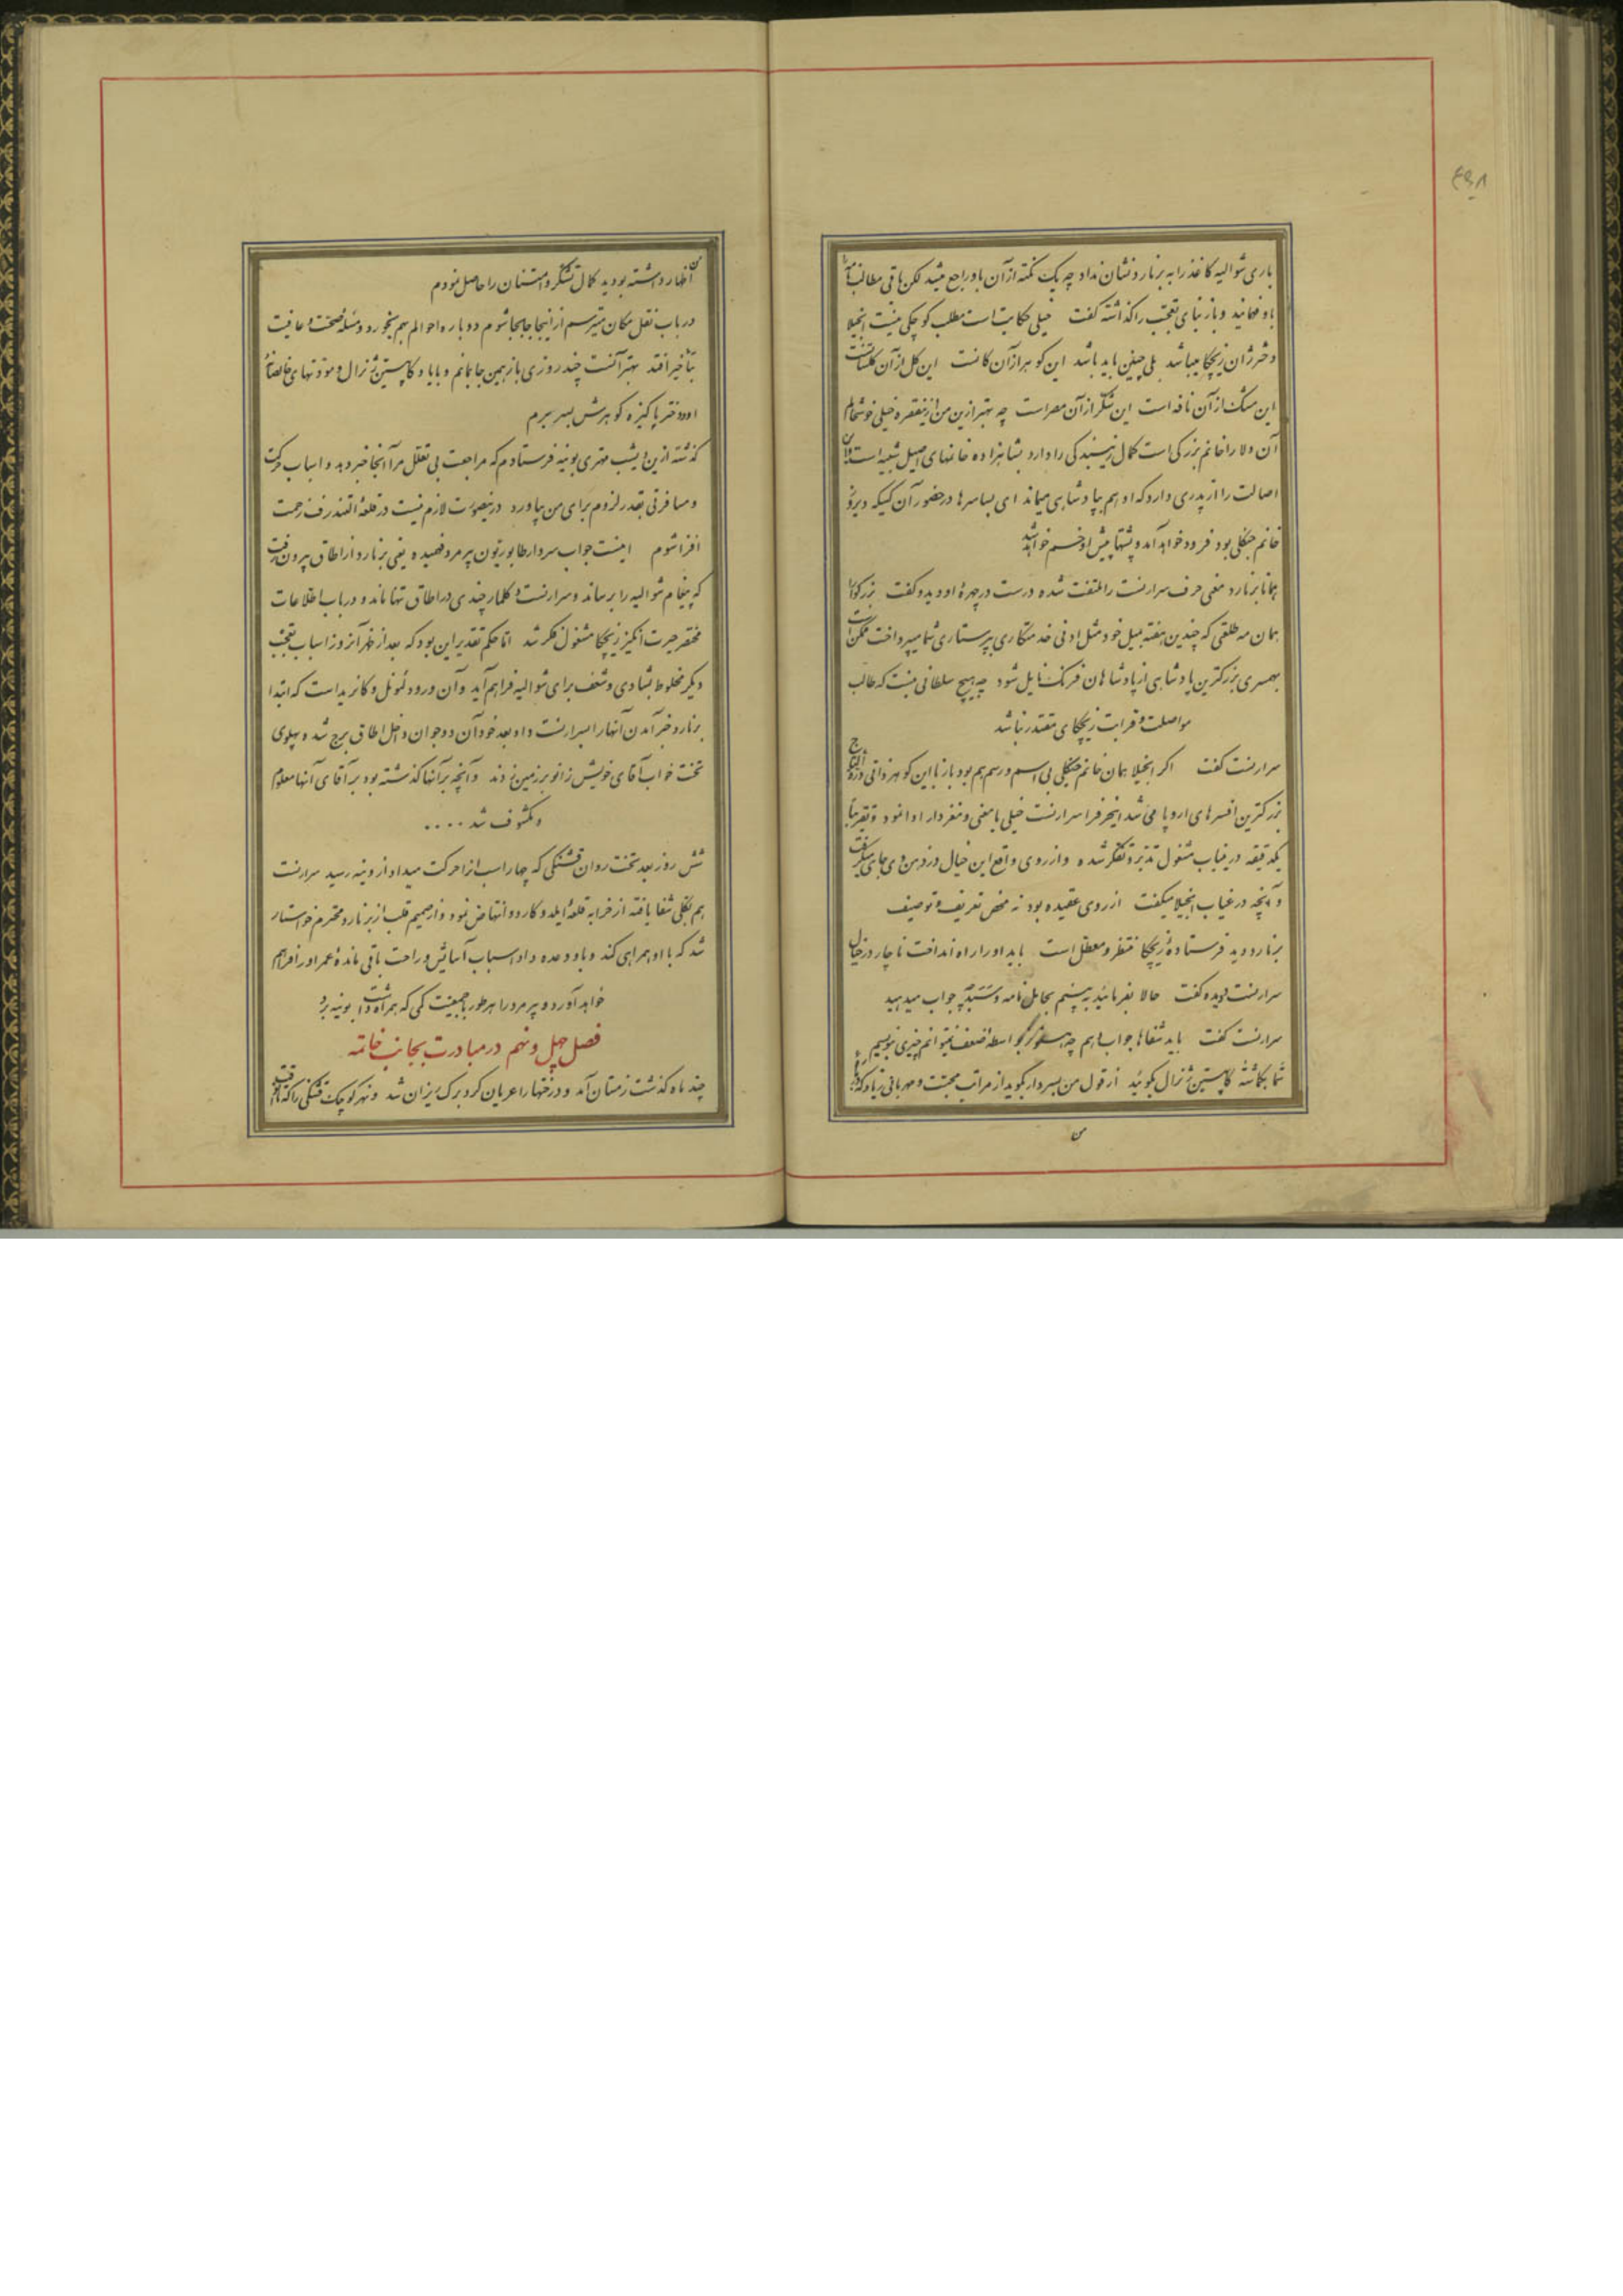 ۴۹۸
باری شوالیه کاغذ را به برنارد نشان نداد چه یک نکته از آن باو راجع میشد لکن باقی مطالب نامه را
باو فهمانید و بار نبای تعجب را گذاشته گفت خیلی حکایت است مطلب کوچکی نیست انجیلا
دختر ژان زیچکا میباشد بلی چنین باید باشد این گوهر از آن کانست این گل از آن گلستانست
این مشک از آن نافه است این شکر از آن مصر است چه بهتر ازین من ازینفقره خیلی خوشحالم
آن والا را خانم بزرگی است کمال زیبندگی را دارد بشاهزاده خانمهای اصیل شبیه است و این
اصالت را از پدری دارد که او هم بپادشاهی میماند ای بسا سرها در حضور آن کسیکه دیروز
خانم جنگلی بود فرود خواهد آمد و پشتها پیش او خم خواهد شد
همانا برنارد معنی حرف سرارنست را ملتفت شده درست در چهرهٔ او دیده و گفت بزرگوارا
همان مه طلعتی که چندین هفته بمیل خود مثل ادنی خدمتکاری بپرستاری شما میپرداخت ممکن است
بهمسری بزرگترین پادشاهی از پادشاهان فرنک نایل شود چه هیچ سلطانی نیست که طالب
مواصلت و قرابت زیچکای مقتدر نباشد
سرارنست گفت اگر انجیلا همان خانم جنگلی بی اسم و رسم هم بود باز با این گوهر ذاتی درة التاج
بزرگترین افسرهای اروپا می شد اینحرف را سرارنست خیلی بامعنی و مغزدار ادا نمود و تقریباً
یکدقیقه در نیباب مشغول تدبر و تفکر شده و از روی واقع این خیال در ذهن وی جای میگرفت
و آنچه در غیاب انجیلا میگفت از روی عقیده بود نه محض تعریف و توصیف
برنارد دید فرستادهٔ زیچکا منتظر و معطل است باید او را راه انداخت ناچار در خیال
سرارنست دویده گفت حالا بفرمائید به بینیم بحامل نامه چه جواب میدهید
سرارنست گفت باید شفاها جواب دهم چه هنوز بواسطه ضعف نمیتوانم چیزی بنویسم
شما بگماشته کاپیتین ژنرال بگوئید از قول من بسردار بگوید از مراتب محبت و مهربانی زیاد که
من
اظهار داشته بودید کمال تشکر و امتنان را حاصل نمودم
در باب نقل مکان میترسم از اینجا جابجا شوم دوباره احوالم بهم بخورد و مسئله صحت و عافیت
بتأخیر افتد بهتر آنست چند روزی باز همین جا بمانم و با یاد کاپیتین ژنرال و مودتهای خالصانهٔ
او و دختر پاکیزه گوهرش بسر برم
گذشته ازین دیشب مهتری بوینه فرستادم که مراجعت بی تعلل مرا آنجا خبر دهد و اسباب حرکت
و مسافرتی بقدر لزوم برای من بیاورد درینصورت لازم نیست در قلعهٔ التندرف زحمت
افزا شوم اینست جواب سردار طابوریتون پیر مرد فهمیده یعنی برنارد از اطاق بیرون رفت
که پیغام شوالیه را برساند و سرارنست دکلمار چندی در اطاق تنها مانده و در باب اطلاعات
مختصر حیرت انگیز زیچکا مشغول فکر شد اما حکم تقدیر این بود که بعد از ظهر آنروز اسباب تعجب
دیگر مخلوط بشادی و شعف برای شوالیه فراهم آید و آن ورود لیونل و کانریداست که ابتدا
برنارد خبر آمدن آنها را بسرارنست داد بعد خود آن دو جوان داخل اطاق برج شده پهلوی
تخت خواب آقای خویش زانو بر زمین زدند و آنچه بر آنها گذشته بود بر آقای آنها معلوم
و مکشوف شد ....
شش روز بعد تخت روان قشنگی که چهار اسب انرا حرکت میداد از وینه رسید سرارنست
هم بکلی شفا یافته از خرابه قلعهٔ ایلدکاردو انتهاض نمود و از صمیم قلب از برنارد محترم خواستار
شد که با او همراهی کند و باو وعده داد اسباب آسایش و راحت باقی ماندهٔ عمر او را فراهم
خواهد آورد و پیر مرد را هر طور با جمعیت کمی که همراه داشت بوینه برد
فصل چهل و نهم در مبادرت بجانب خاتمه
چند ماه گذشت زمستان آمد و درختها را عریان کرد برک ریزان شد و نهر کوچک قشنگی را که